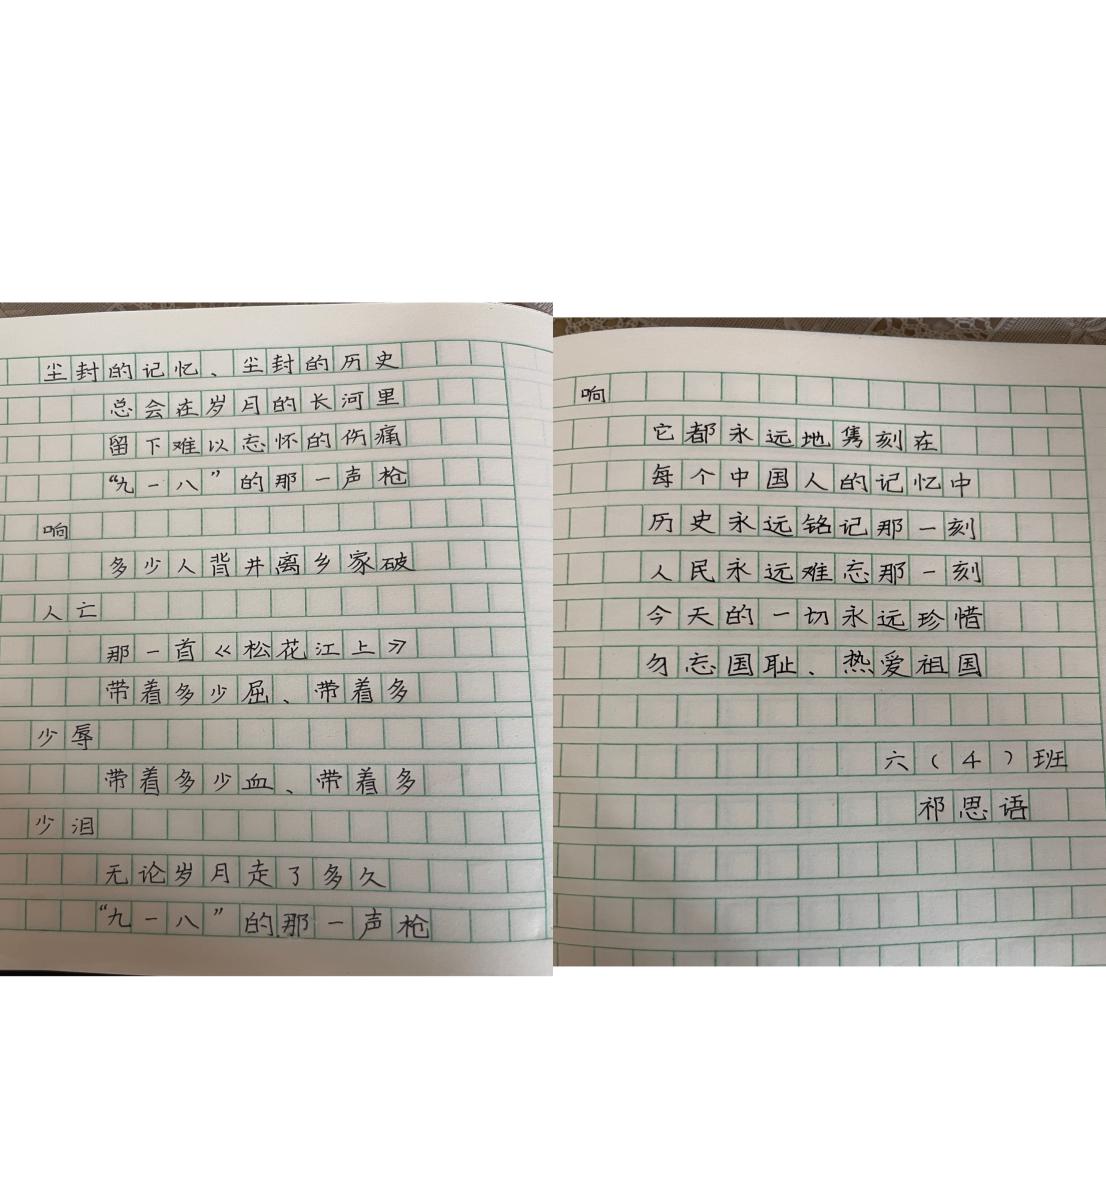 尘封的记忆、尘封的历史
总会在岁月的长河里
留下难以忘怀的伤痛
“九一八”的那一声枪
响
多少人背井离乡家破
人亡
那一首《松花江上》
带着多少屈、带着多
少辱
带着多少血、带着多
少泪
无论岁月走了多久
“九一八”的那一声枪
响
它都永远地隽刻在
每个中国人的记忆中
历史永远铭记那一刻
人民永远难忘那一刻
今天的一切永远珍惜
勿忘国耻、热爱祖国
六(4)班
祁思语